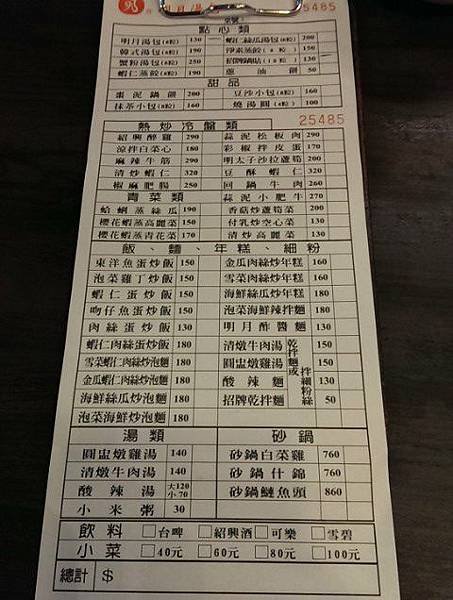 明月湯
25485
點心類
明月湯包(8粒) 130 蝦仁絲瓜湯包(8粒) 200
韓式湯包(8粒) 190 淨素蒸餃(8粒) 150
蟹粉湯包(8粒) 250 招牌鍋貼(10粒) 130
蝦仁蒸餃(8粒) 190 蔥油餅 50
甜品
棗泥鍋餅 200 豆沙小包(8粒) 160
抹茶小包(8粒) 160 燒湯圓(8粒) 100
熱炒冷盤類 25485
紹興醉雞 290 蒜泥松板肉 290
涼拌白菜心 180 彩椒拌皮蛋 170
麻辣牛筋 290 明太子沙拉蘆筍 200
清炒蝦仁 320 豆酥蝦仁 320
椒麻肥腸 250 回鍋牛肉 260
青菜類 蒜泥小肥牛 270
蛤蜊蒸絲瓜 190 香菇炒蘆筍菜 200
櫻花蝦蒸高麗菜 150 付乳炒空心菜 130
櫻花蝦蒸青花菜 170 清炒高麗菜 130
飯、麵、年糕、細粉
東洋魚蛋炒飯 150 金瓜肉絲炒年糕 160
泡菜雞丁炒飯 150 雪菜肉絲炒年糕 160
蝦仁蛋炒飯 180 海鮮絲瓜炒年糕 180
吻仔魚蛋炒飯 150 泡菜海鮮辣拌麵 180
肉絲蛋炒飯 130 明月酢醬麵 130
蝦仁肉絲蛋炒飯 180 清燉牛肉湯 乾拌麵或拌細粉絲 150
雪菜蝦仁肉絲炒泡麵 180 圓盅燉雞湯 150
金瓜蝦仁肉絲炒泡麵 180 酸辣麵 130
海鮮絲瓜炒泡麵 180 招牌乾拌麵 50
泡菜海鮮炒泡麵 180
湯類 砂鍋
圓盅燉雞湯 140 砂鍋白菜雞 760
清燉牛肉湯 140 砂鍋什錦 760
酸辣湯 大120 小70 砂鍋鰱魚頭 860
小米粥 30
飲料 □台啤 □紹興酒 □可樂 □雪碧
小菜 □40元 □60元 □80元 □100元
總計 $